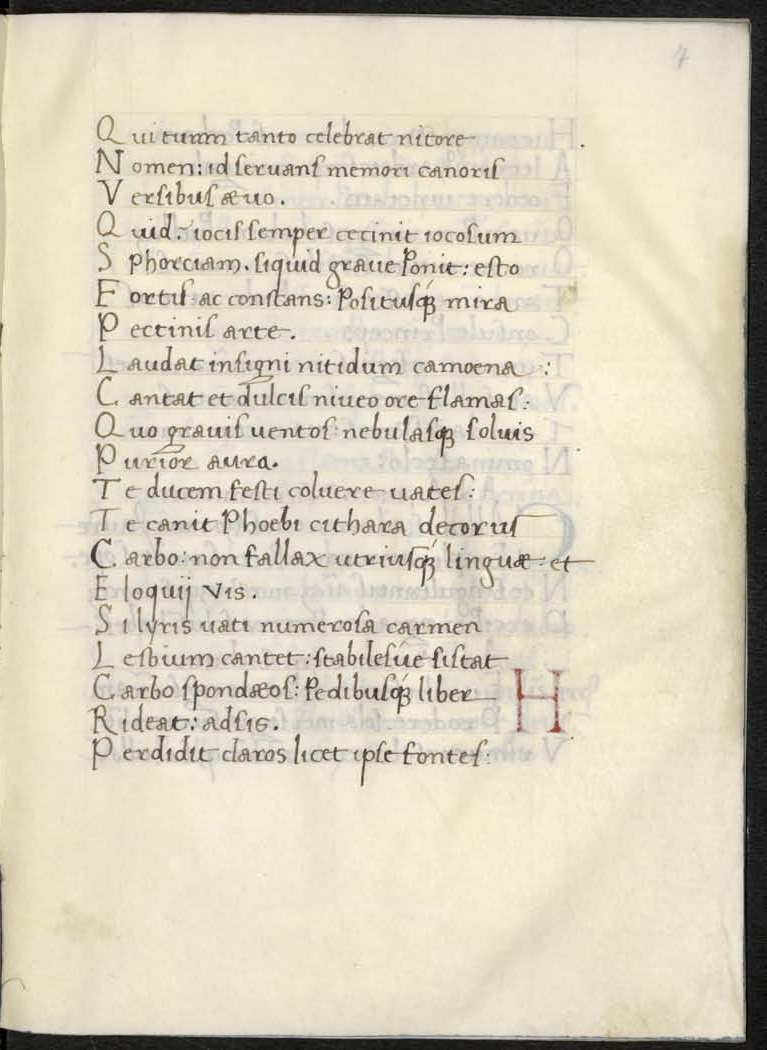 7
Qui tuum tanto celebrat nitore
Nomen: id seruans memori canoris
Versibus æuo.
Quid? iocis semper cecinit iocosum
Sphorciam. siquid graue ponit: esto
Fortis: ac constans: positusq́ꝫ mira
Pectinis arte.
Laudat insigni nitidum camoena:
Cantat et dulcis niueo ore flamas:
Quo grauis uentos nebulasqꝫ soluis
Purior aura.
Te ducem festi coluere uates:
Te canit Phoebi cithara decorus
Carbo: non fallax utriusq́ꝫ linguæ: et
Eloquij vis.
Si lyris uati numerosa carmen
Lesbium cantet: stabilesúe sistat
Carbo spondæos: pedibusq́ꝫ liber
Rideat: adsis.
H
Perdidit claros licet ipse fontes: